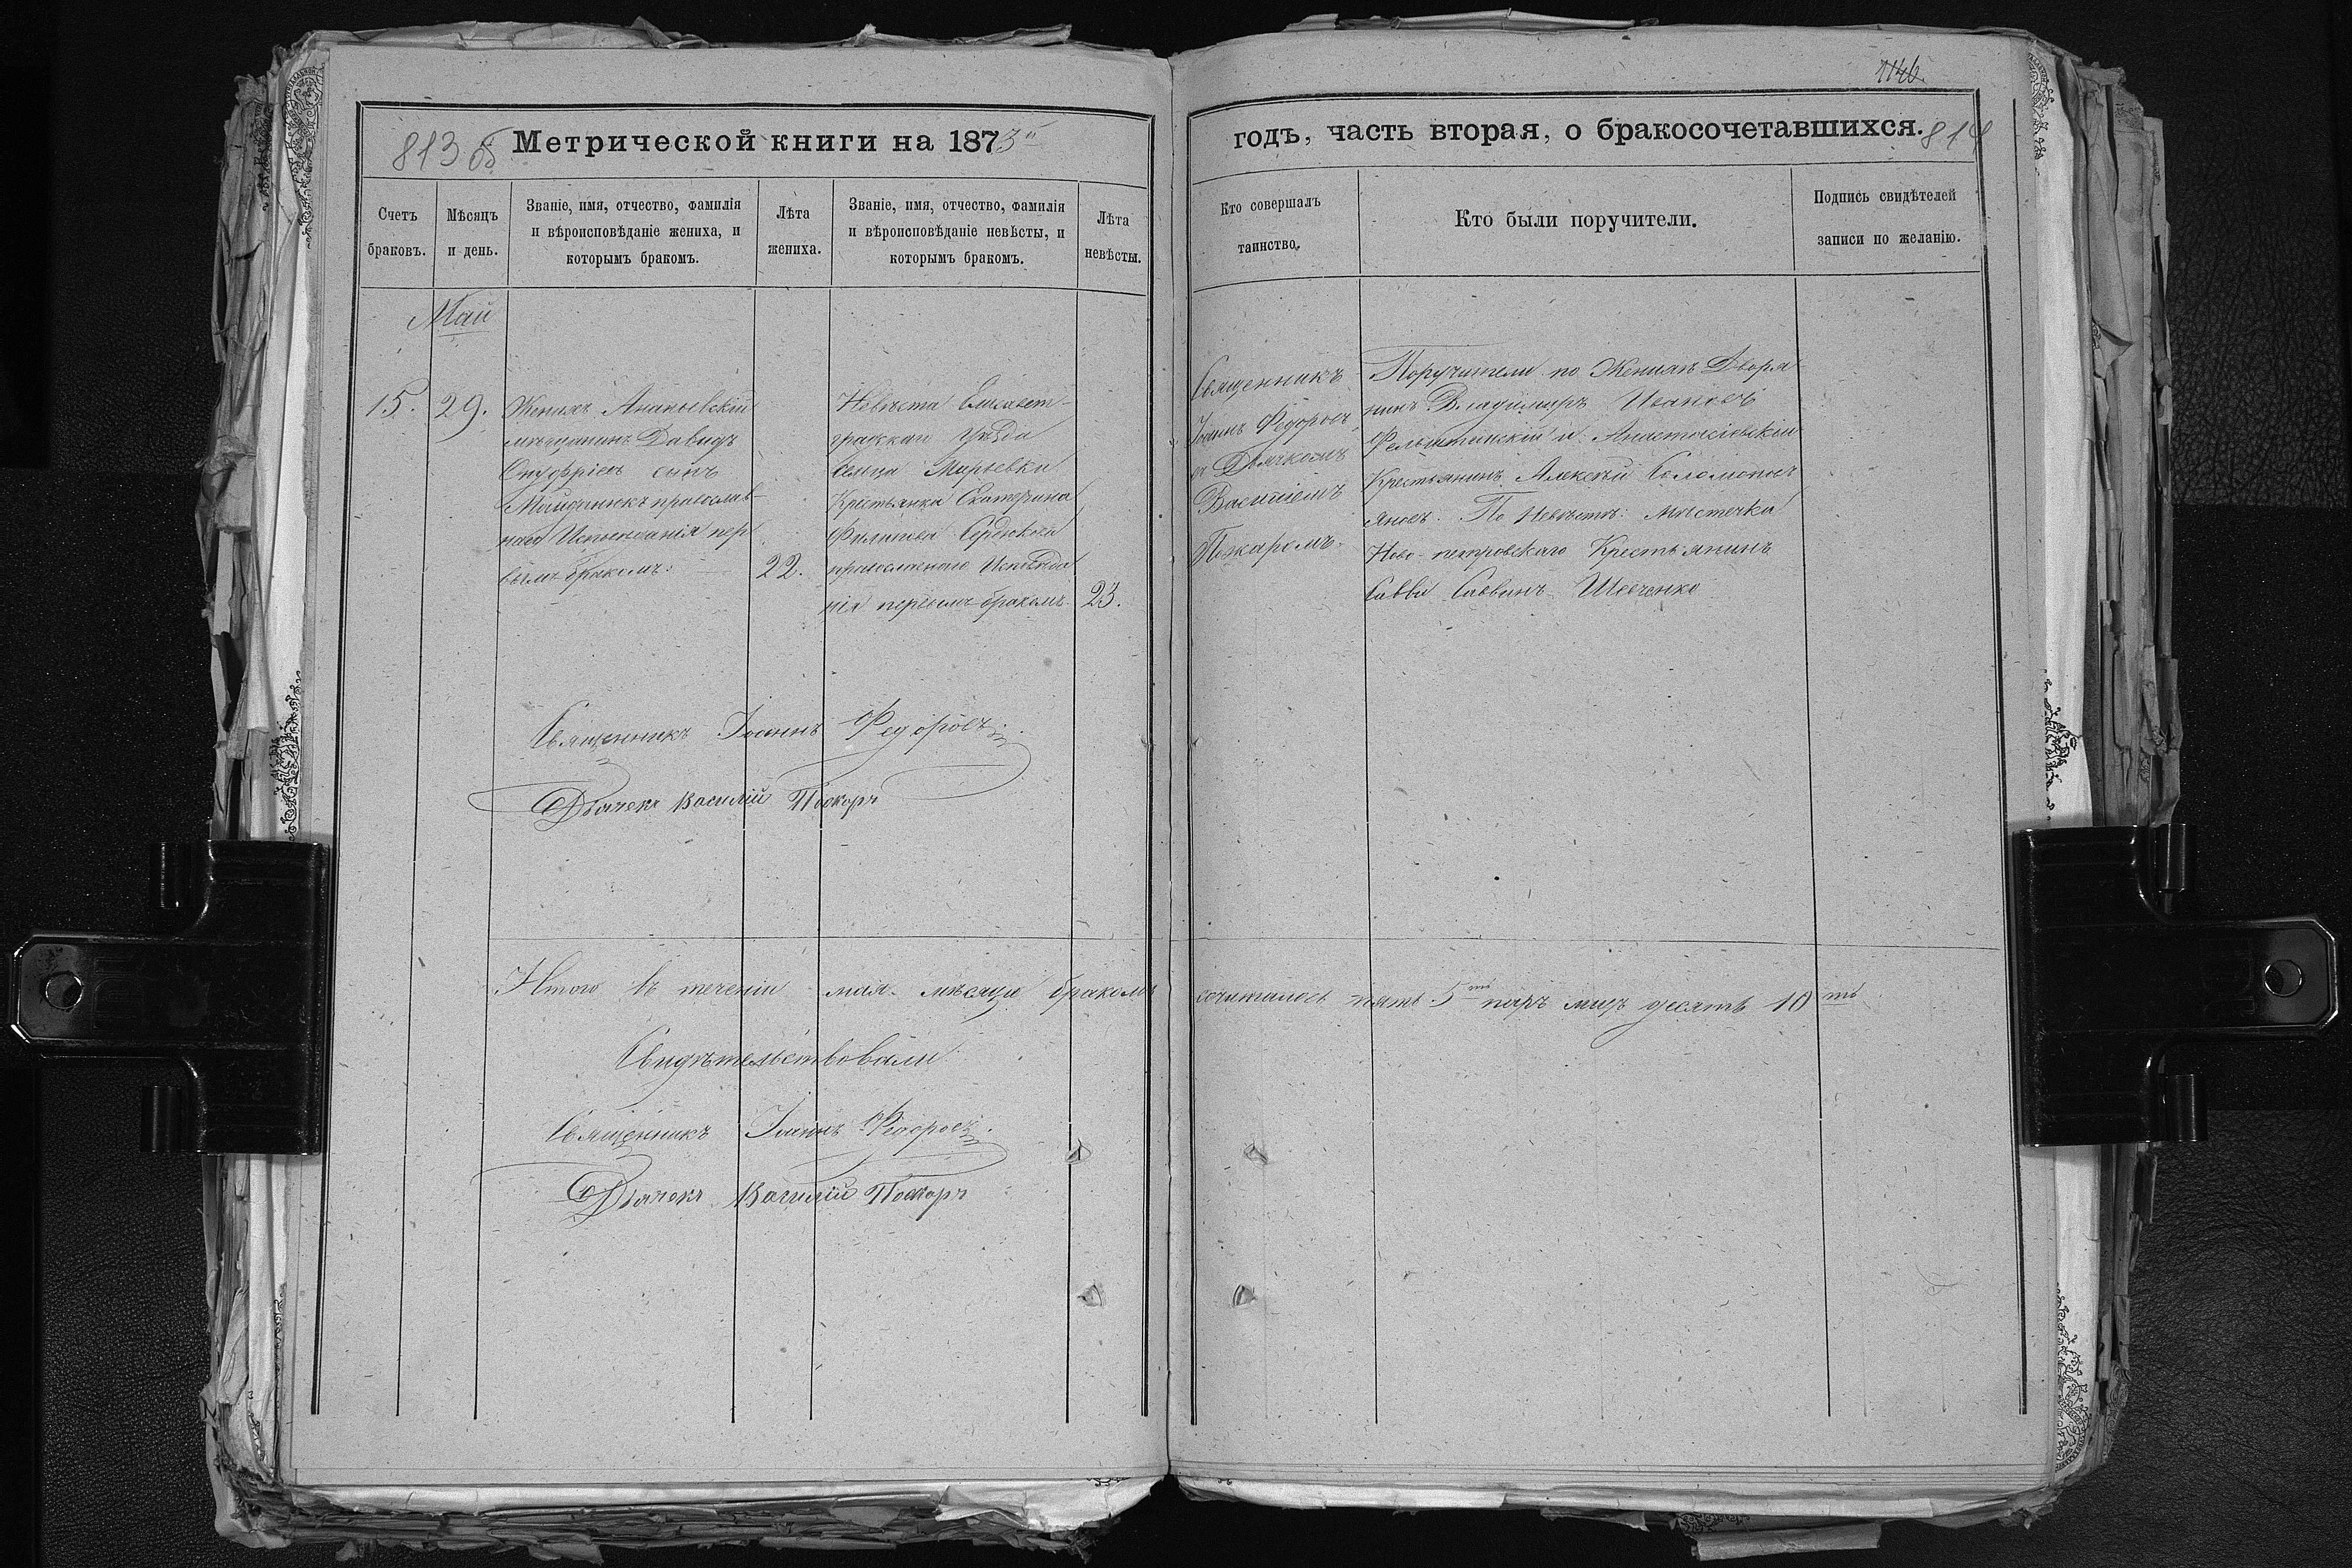 1146.
813 об
Метрической книги на 1873й
годъ, часть вторая, о бракосочетавшихся.
814
Счетъ браковъ.
Мѣсяцъ и день.
Званіе, имя, отчество, фамилія
и вѣроисповѣданіе жениха, и
которымъ бракомъ.
Лѣта жениха.
Званіе, имя, отчество, фамилія
и вѣроисповѣданіе невѣсты, и
которымъ бракомъ.
Лѣта невѣсты.
Кто совершалъ
таинство.
Кто были поручители.
Подпись свидѣтелей
записи по желанію.
Май
15.
29.
Женихъ Ананьевскій
мѣщанинъ Давидъ
Онуфріевъ сынъ
православ-
наго Исповѣданія пер
вымъ бракомъ.
22.
Невѣста Елисавет-
градскаго Уѣзда
Марьевки
Крестьянка Екатерина
Филипова
православного Исповѣда
нія первымъ бракомъ
23.
Священникъ
Іоаннъ Федоровъ
съ Дьячкомъ
Василіемъ
Поручители по Женихѣ Дворя
нинъ Владимиръ Ивановъ
и Анастасіевскій
Крестьянинъ Алексѣй
По Невѣстѣ: мѣстечка
Ново-петровскаго Крестьянинъ
Савва Саввинъ Шевченко
Священникъ Іоаннъ Федоровъ
Дьячекъ Василій
Итого въ теченіи мая мѣсяца бракомъ сочиталось пять 5ть паръ лицъ десять 10ть
Свидѣтельствовали
Священникъ Іоаннъ Федоровъ
Дьячекъ Василій